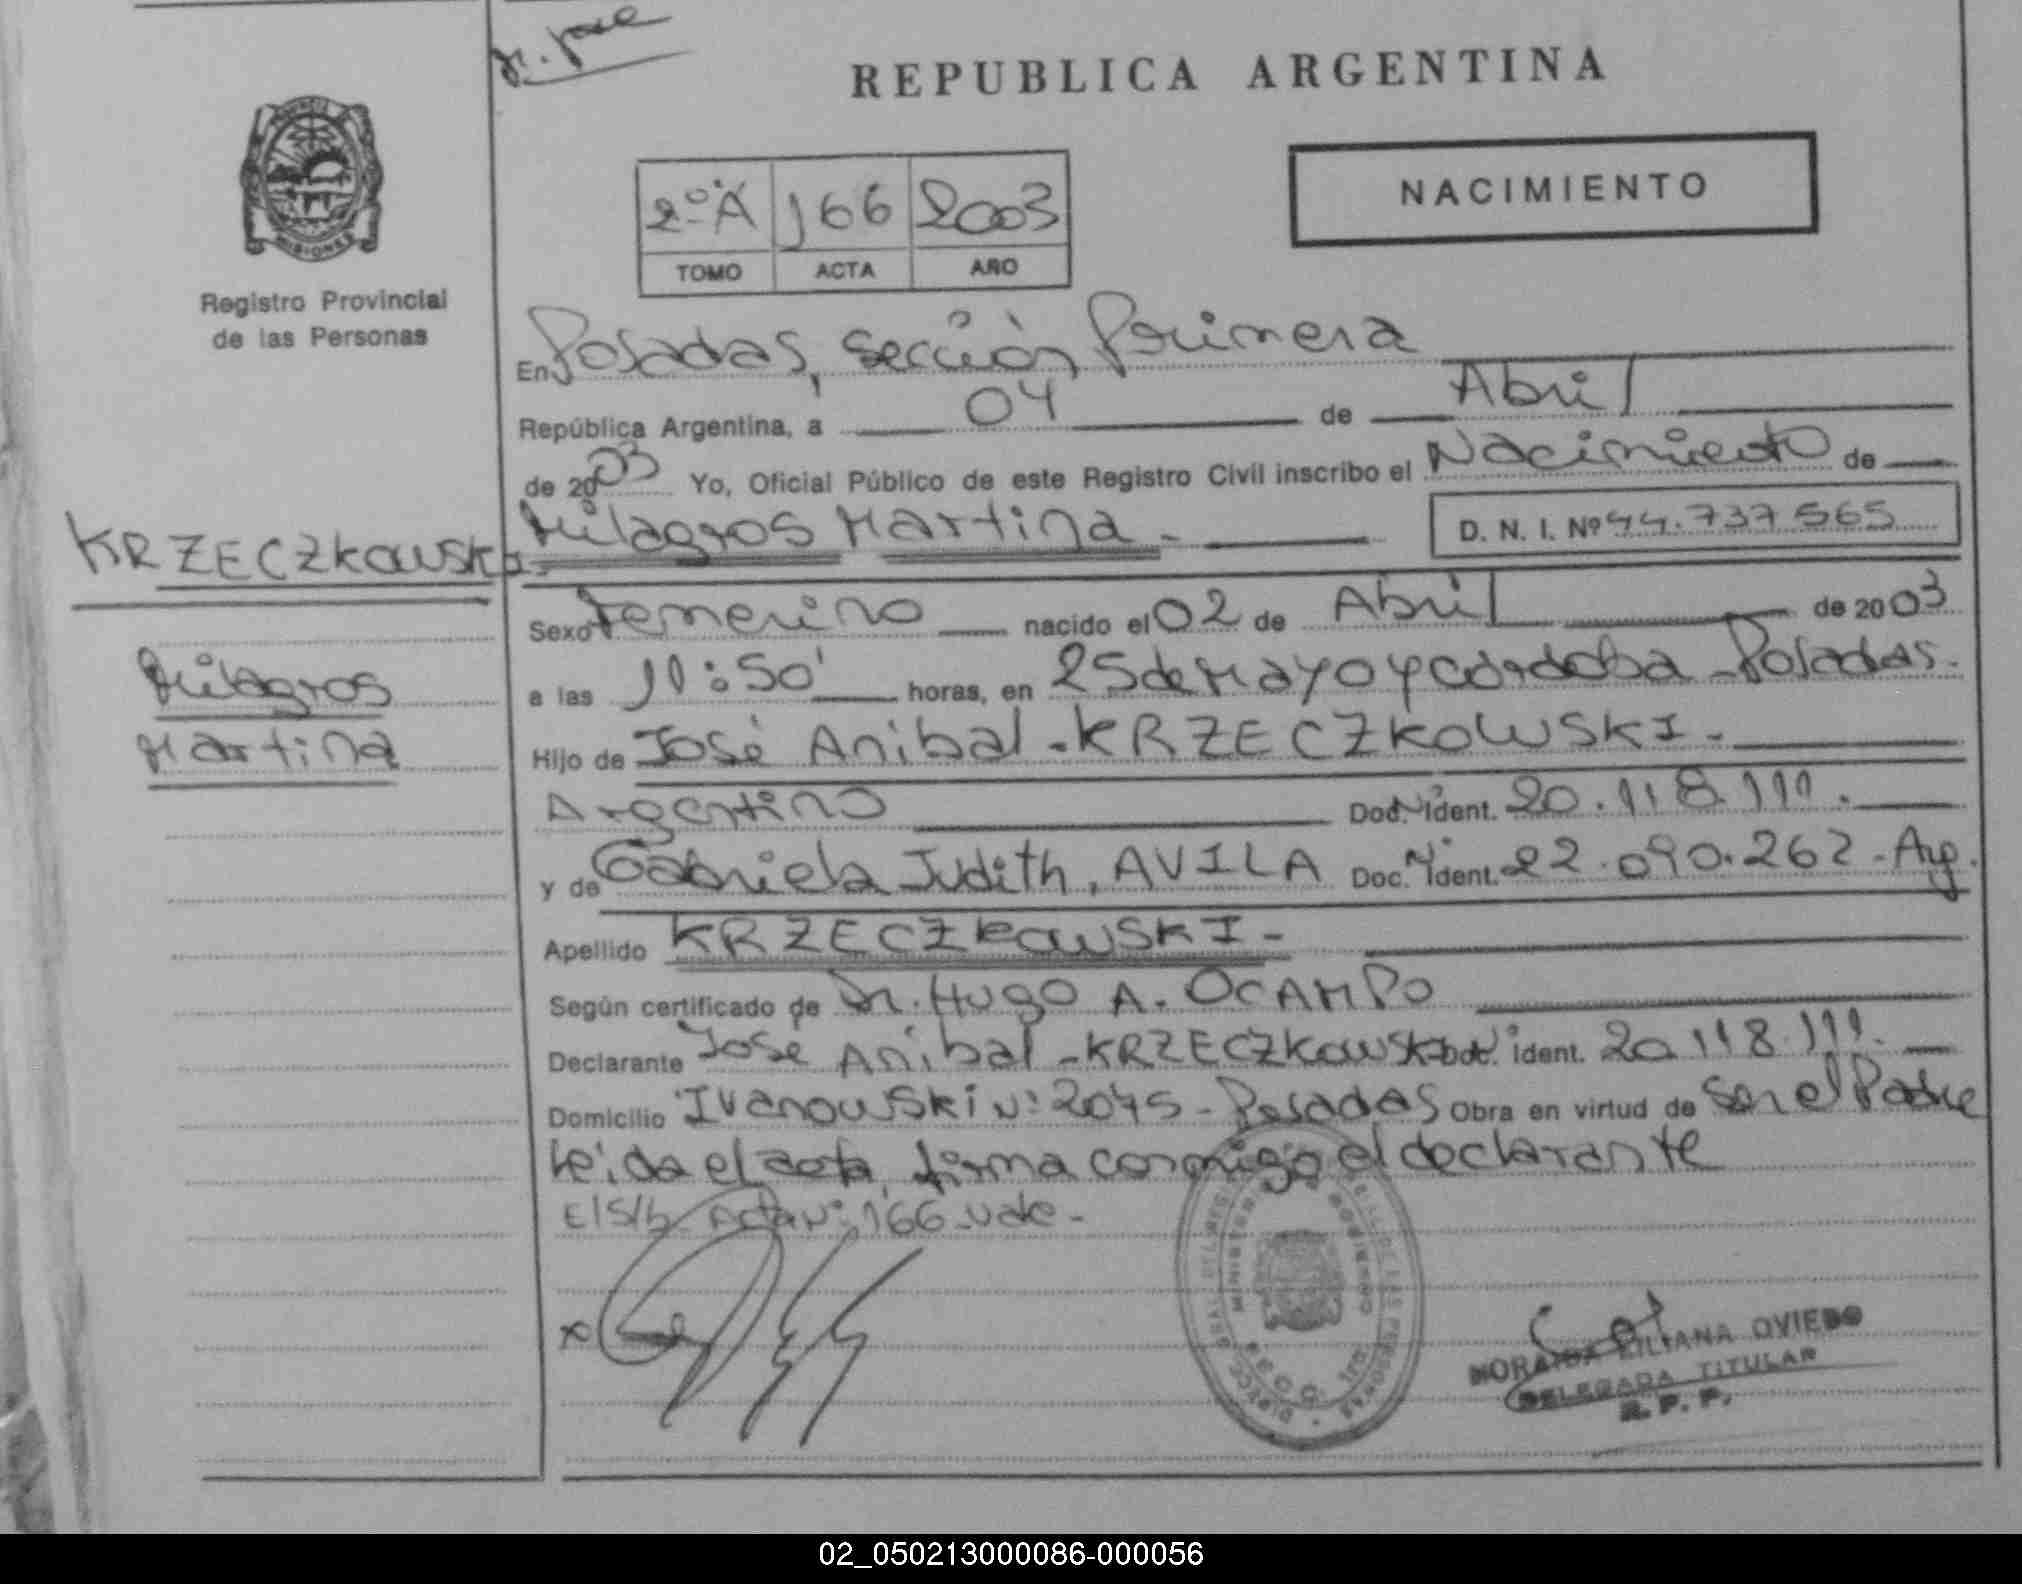 REPUBLICA ARGENTINA
NACIMIENTO
2º A 166 2003
TOMO ACTA AÑO
MISIONES
Registro Provincial
de las Personas
KRZECZKOWSKI
Milagros
Martina
En Posadas, sección Primera
República Argentina, a 04 de Abril
de 2003 Yo, Oficial Público de este Registro Civil inscribo el Nacimiento de
Milagros Martina - D. N. I. Nº 44.737 565
Sexo Femenino nacido el 02 de Abril de 2003
a las 11:50' horas, en 25 de Mayo y Córdoba - Posadas.
Hijo de José Anibal - KRZECZKOWSKI -
Argentino Doc. Nº ident. 20.118.111.
y de Gabriela Judith, AVILA Doc. Nº ident. 22.090.262 - Arg.
Apellido KRZECZKOWSKI -
Según certificado de Dr. Hugo A. OCAMPO
Declarante José Anibal - KRZECZKOWSKI Doc. Nº ident. 20 118.111.
Domicilio Ivanowski Nº 2045 - Posadas Obra en virtud de Ser el Padre
Leida el acta, firma conmigo el declarante
E/S/b Acta Nº 166 - vale -
LILIANA OVIEDO
DELEGADA TITULAR
R. P. P.
02_050213000086-000056